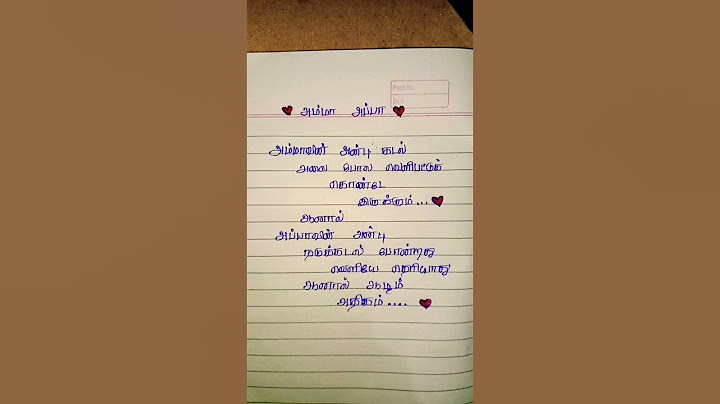 Page No
Date
அம்மா அப்பா
அம்மாவின் அன்பு கடல்
அலை போல வெளிபட்டுக்
கொண்டே
இருக்கும்...
ஆனால்
அப்பாவின் அன்பு
நடுக்கடல் போன்றது
வெளியே தெரியாது
ஆனால் ஆழம்
அதிகம்....